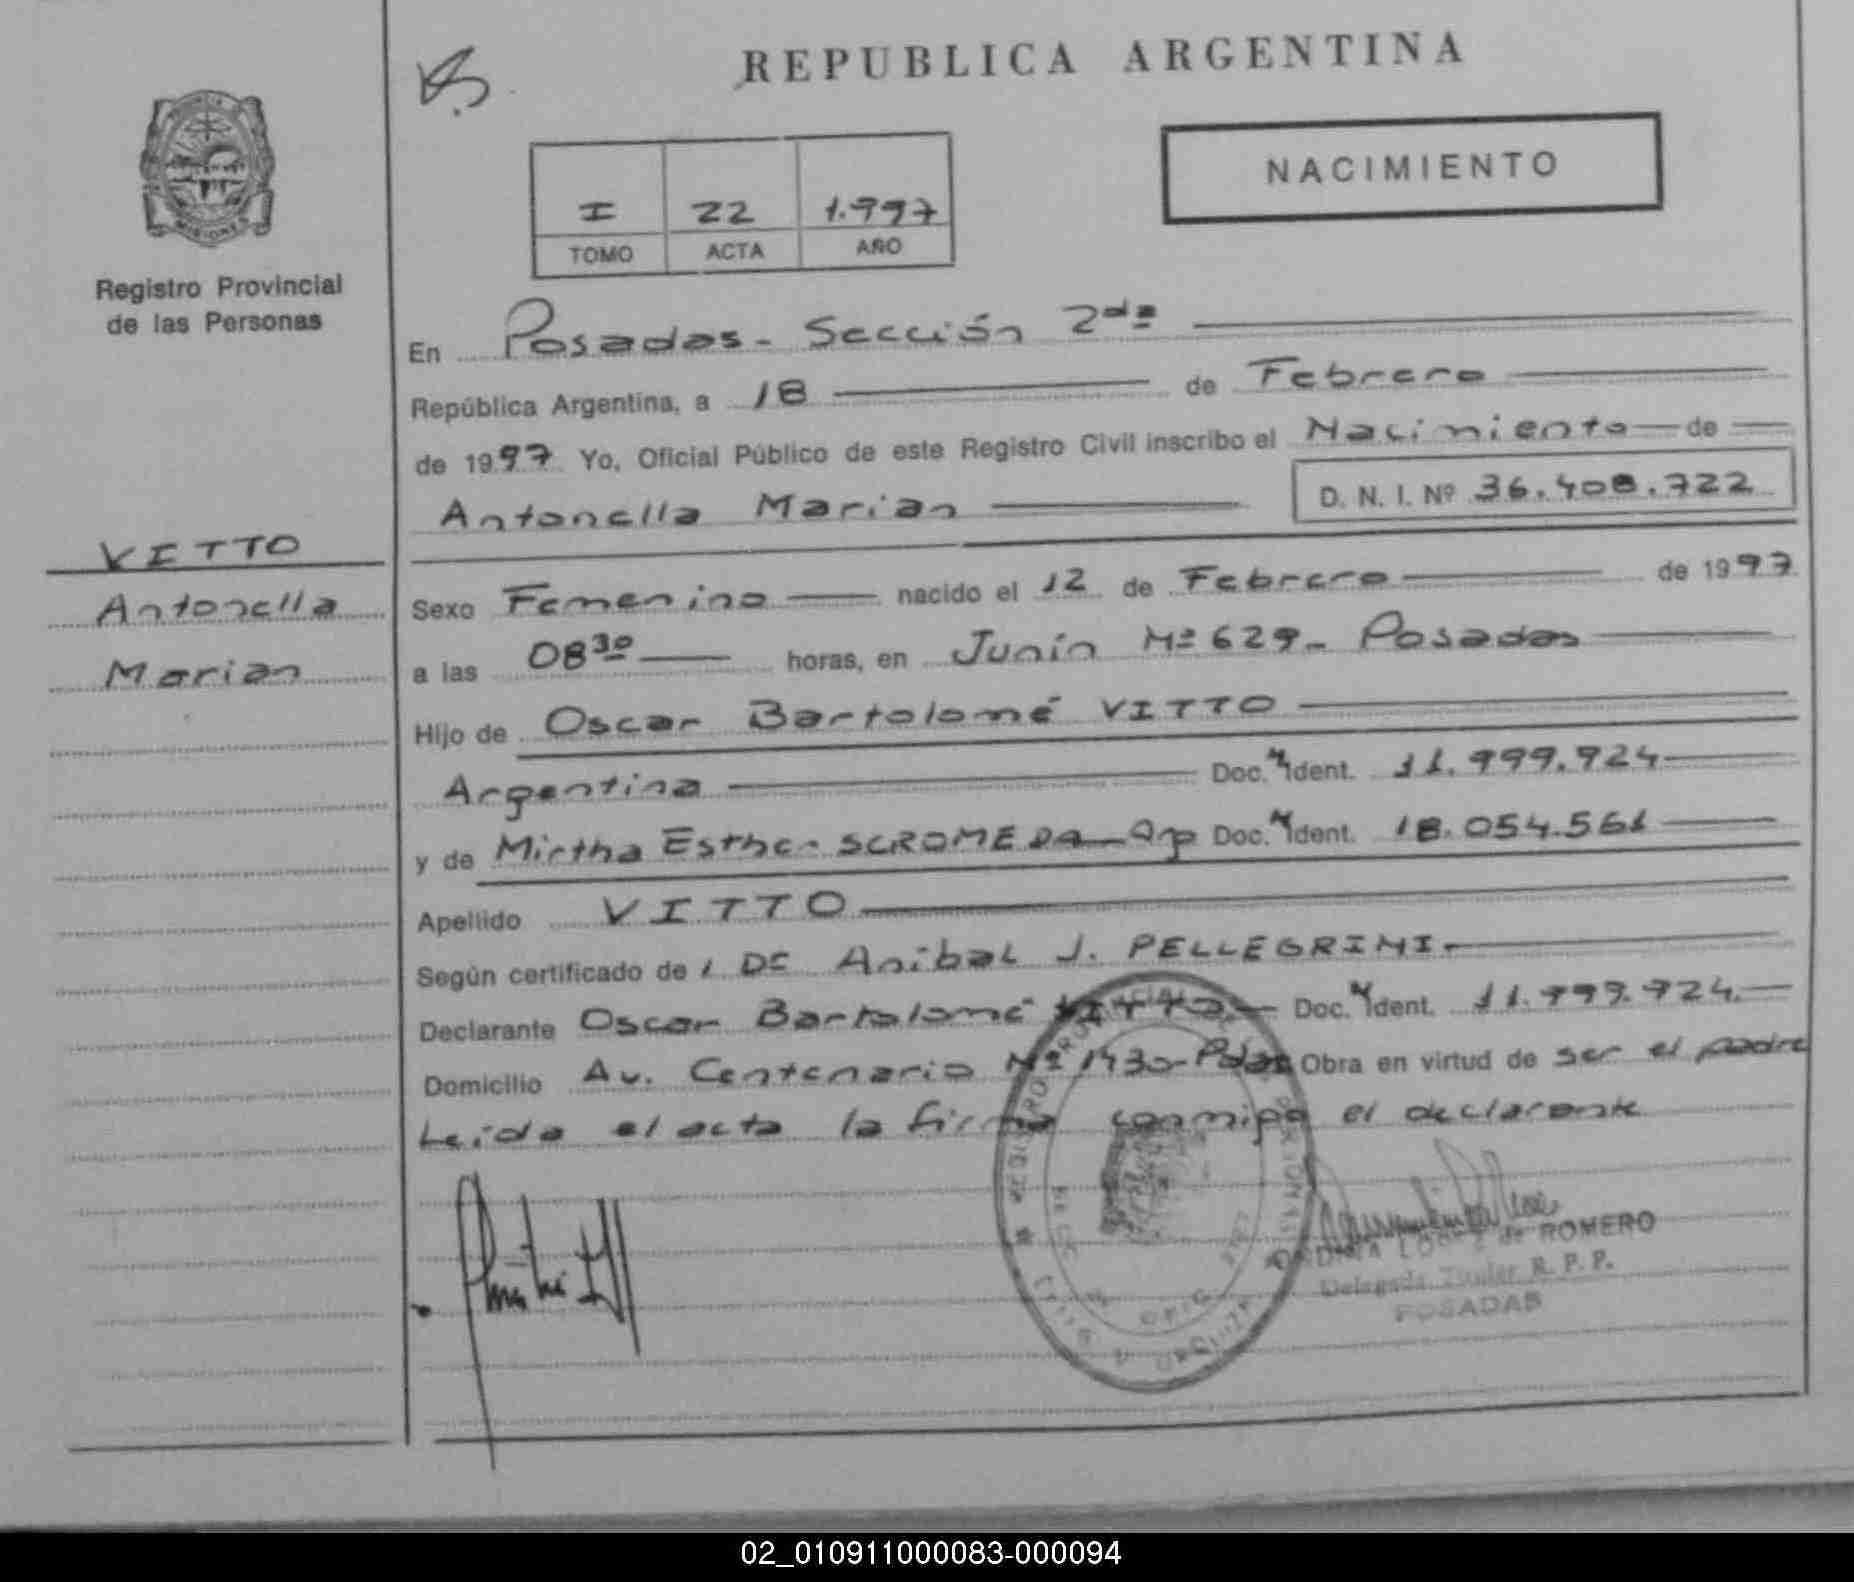 REPUBLICA ARGENTINA
NACIMIENTO
I 22 1.997
TOMO ACTA AÑO
MISIONES
Registro Provincial
de las Personas
VITTO
Antonella
Marian
En Posadas - Sección 2da
República Argentina, a 18 de Febrero
de 1997 Yo, Oficial Público de este Registro Civil inscribo el Nacimiento de
Antonella Marian D. N. I. Nº 36.408.722
Sexo Femenino nacido el 12 de Febrero de 1997
a las 08 30 horas, en Junín Nº 629 - Posadas
Hijo de Oscar Bartolomé VITTO
Argentina Doc. Ident. 11.999.924
y de Mirtha Esther SCROMEDA Arg Doc. Ident. 18.054.561
Apellido VITTO
Según certificado de Anibal J. PELLEGRINI.
Declarante Oscar Bartolomé VITTO Doc. Ident. 11.999.924.
Domicilio Av. Centenario Nº 1430 - Pdas Obra en virtud de ser el padre
Leida el acta la firma conmigo el declarante
de ROMERO
Delegada Titular R. P. P.
POSADAS
02_010911000083-000094